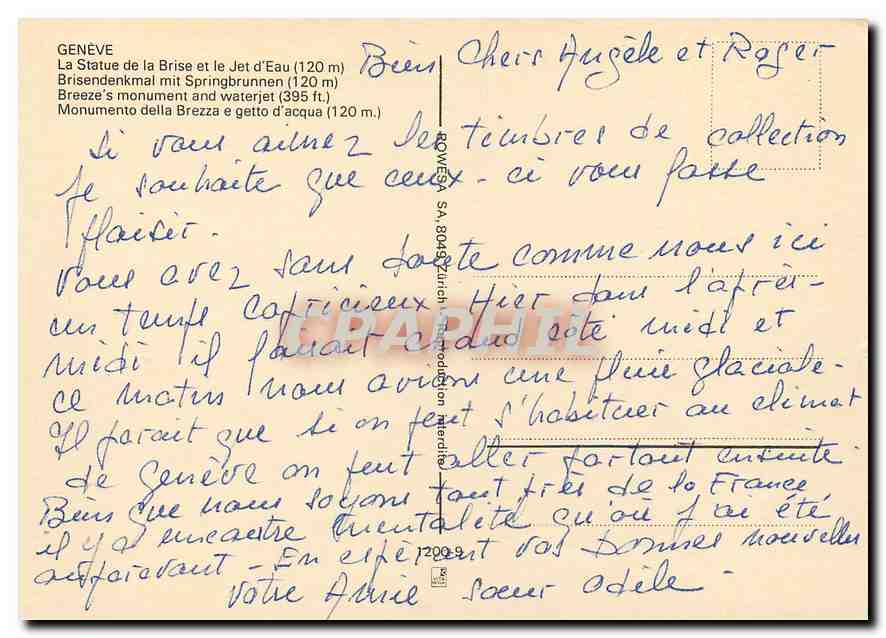 GENÈVE
La Statue de la Brise et le Jet d'Eau (120 m)
Brisendenkmal mit Springbrunnen (120 m)
Breeze's monument and waterjet (395 ft.)
Monumento della Brezza e getto d'acqua (120 m.)
Bien Chers Angèle et Roger
Si vous aimez les timbres de collection
je souhaite que ceux-ci vous fasse
plaisir.
Vous avez sans doute comme nous ici
un temps capricieux. Hier dans l'après-
midi il faisait chaud côté midi et
ce matin nous avions une pluie glaciale.
Il parait que si on peut s'habituer au climat
de Genève on peut aller partout ensuite.
Bien que nous soyons tout près de la France
il y a mentalité qu'où j'ai été
auparavant - En espérant vos bonnes nouvelles
votre Amie sœur Adèle -
ROWESA SA, 8049 Zürich - Reproduction interdite
1200-9
CPAPHIL